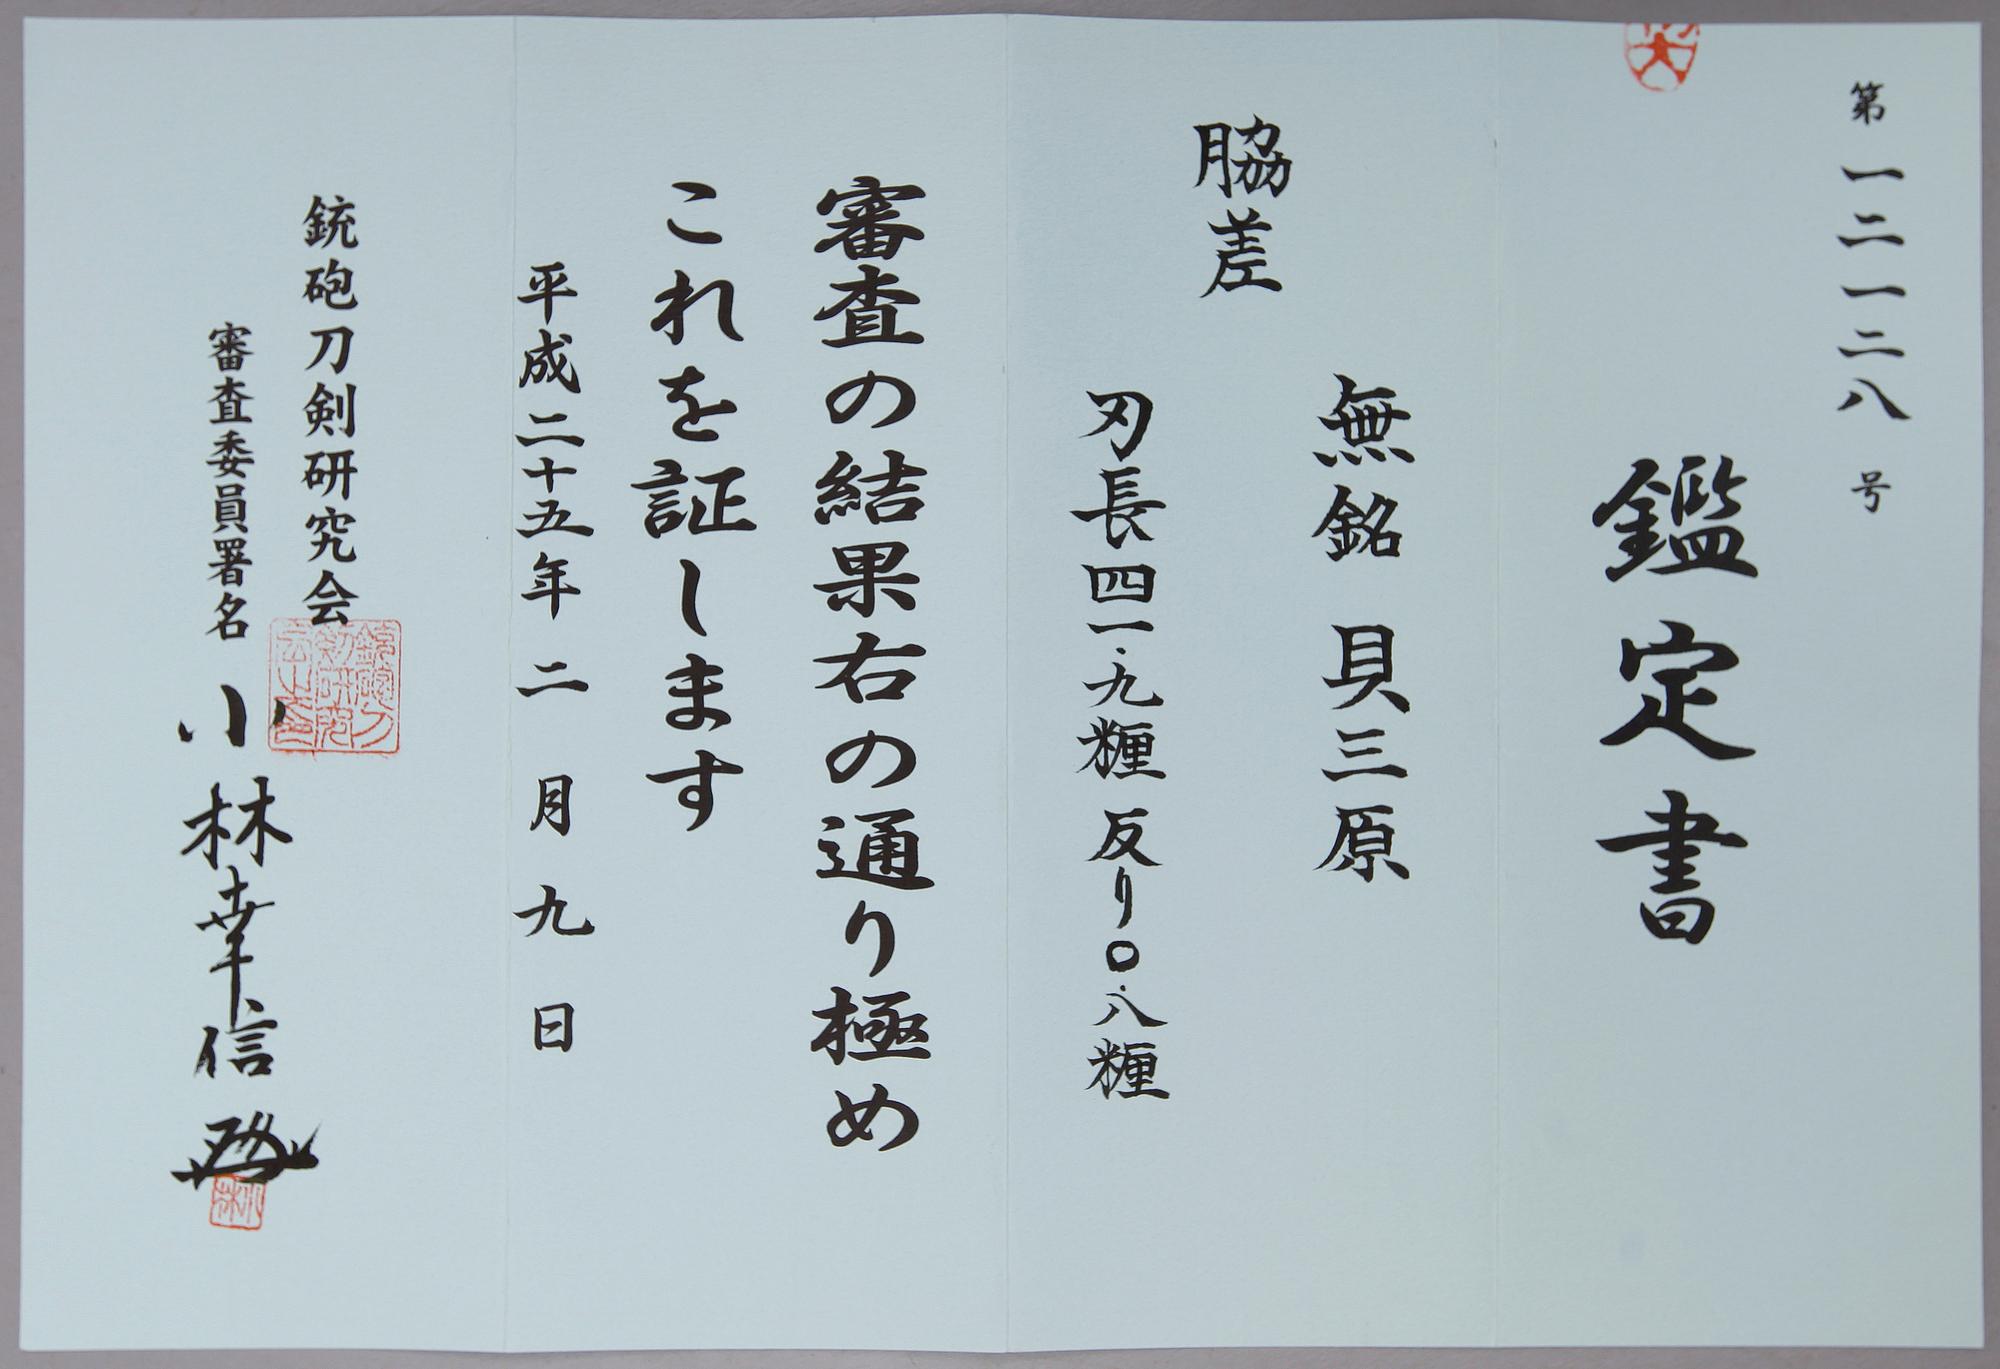 第一二一二八号
鑑定書
無銘 貝三原
脇差
刃長四一.九糎 反り〇.八糎
審査の結果右の通り極め
これを証します
平成二十五年二月九日
銃砲刀剣研究会
審査委員署名 小林幸信